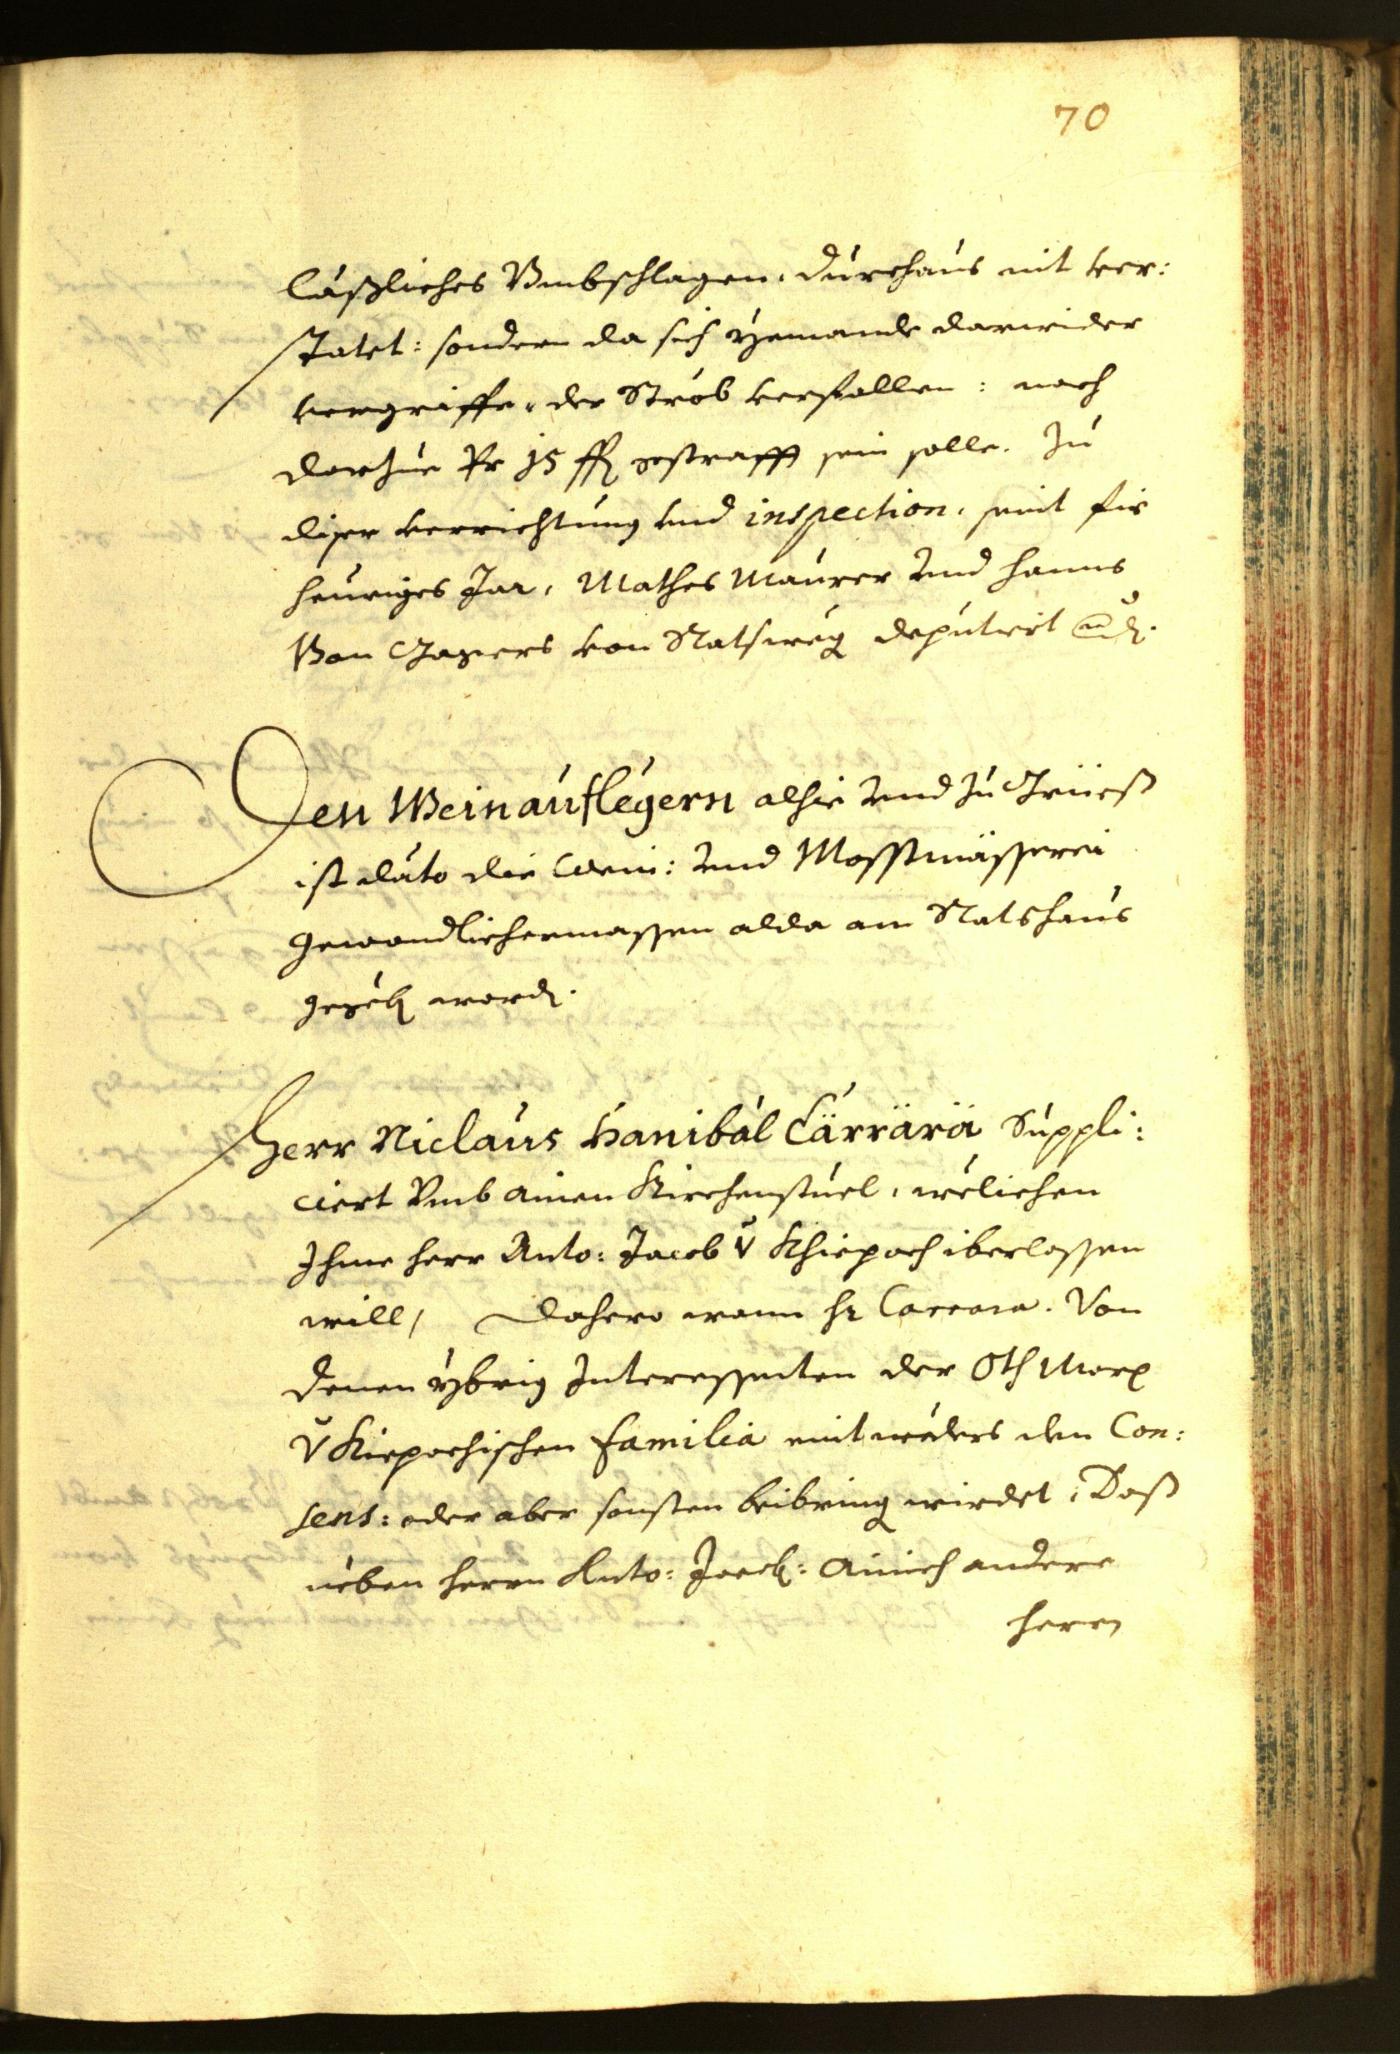 70
läßliches Vmbschlagen, durchaus nit ver:
statet: sondern da sich yemandt darwider
vergriffe, der Strab verfallen: noch
darzue Pr 15 fl gestrafft sein solle. Zu
diser verrichtung vnd inspection, seint fir
heuriges Jar, Mathes Maurer vnd Hanns
Von von Ratsweg deputiert
Den Weinauflegern alhie vnd zu Grieß
ist dato die Wein: vnd Mosstmässerei
gewondlichermassen alda am Ratshaus
gegeb word.
Herr Niclaus Hanibal Carrara Suppli:
ciert Vmb ainen Kirchenstuel, welichen
Ihme Herr Anto: Jacob v Khiepach iberlassen
will, Dahero wann Hr Carrara. Von
denen ybrig Interessenten der Oth Marx
v Kiepachischen familia eintweders den Con:
sens: oder aber sonsten beibring wirdet, Daß
neben Herrn Anto: Jacob: ainich andere
Herrn